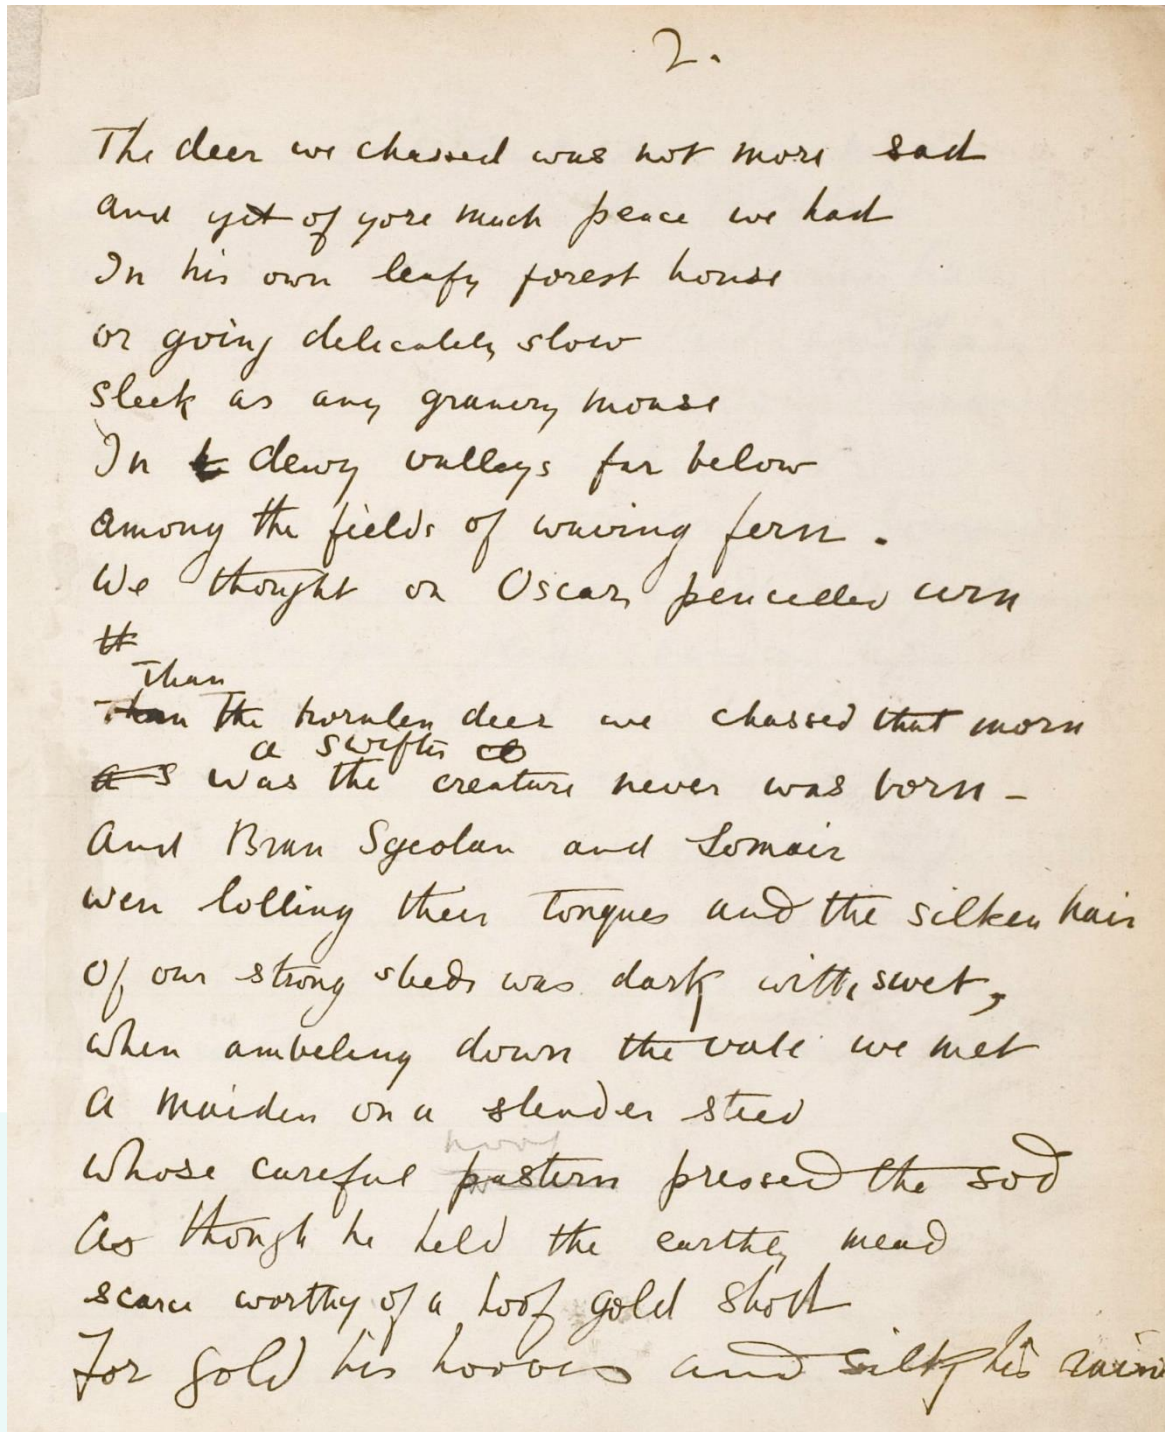 2.
The deer we chassed was not more sad
and yet of yore much peace we had
In his own leafy forest house
or going delicately slow
sleek as any granery mouse
In t dewy valleys far below
among the fields of waving fern.
We thought on Oscars pencelled urn
tt
Than
Than the hornlen deer we chassed that morn
a swifter
as was the creature never was born -
And Bran Sgeolan and Lomair
wer lolling their tongues and the silken hair
Of our strong steeds was dark with swet,
when ambeling down the vale we met
a maiden on a slender steed
hoof
whose careful pastern pressed the sod
As though he held the earthly mead
scarce worthy of a hoof gold shod
For gold his hooves and silk his rein